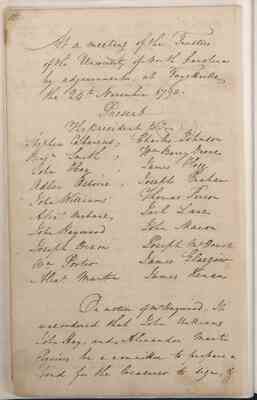 At a meeting of the Trustees
of the University of North Carolina
by adjournment at Fayetteville
the 24th November 1790.
Present
The President
Stephen Cabarrus, Charles Johnson
Benjn Smith,
John Hay, James Hogg
Adlai Osborne, Joseph Graham
John Williams Thomas Person
Alexr Mebane, Joel Lane
John Haywood John Macon
Joseph Dixon Joseph McDowell
Wm Porter James Glasgow
Alexr Martin James Kenan
On motion of Mr Haywood, It
was ordered that John Williams
John Hay, and Alexander Martin
be a committee to prepare a
bond for the treasurer to sign,